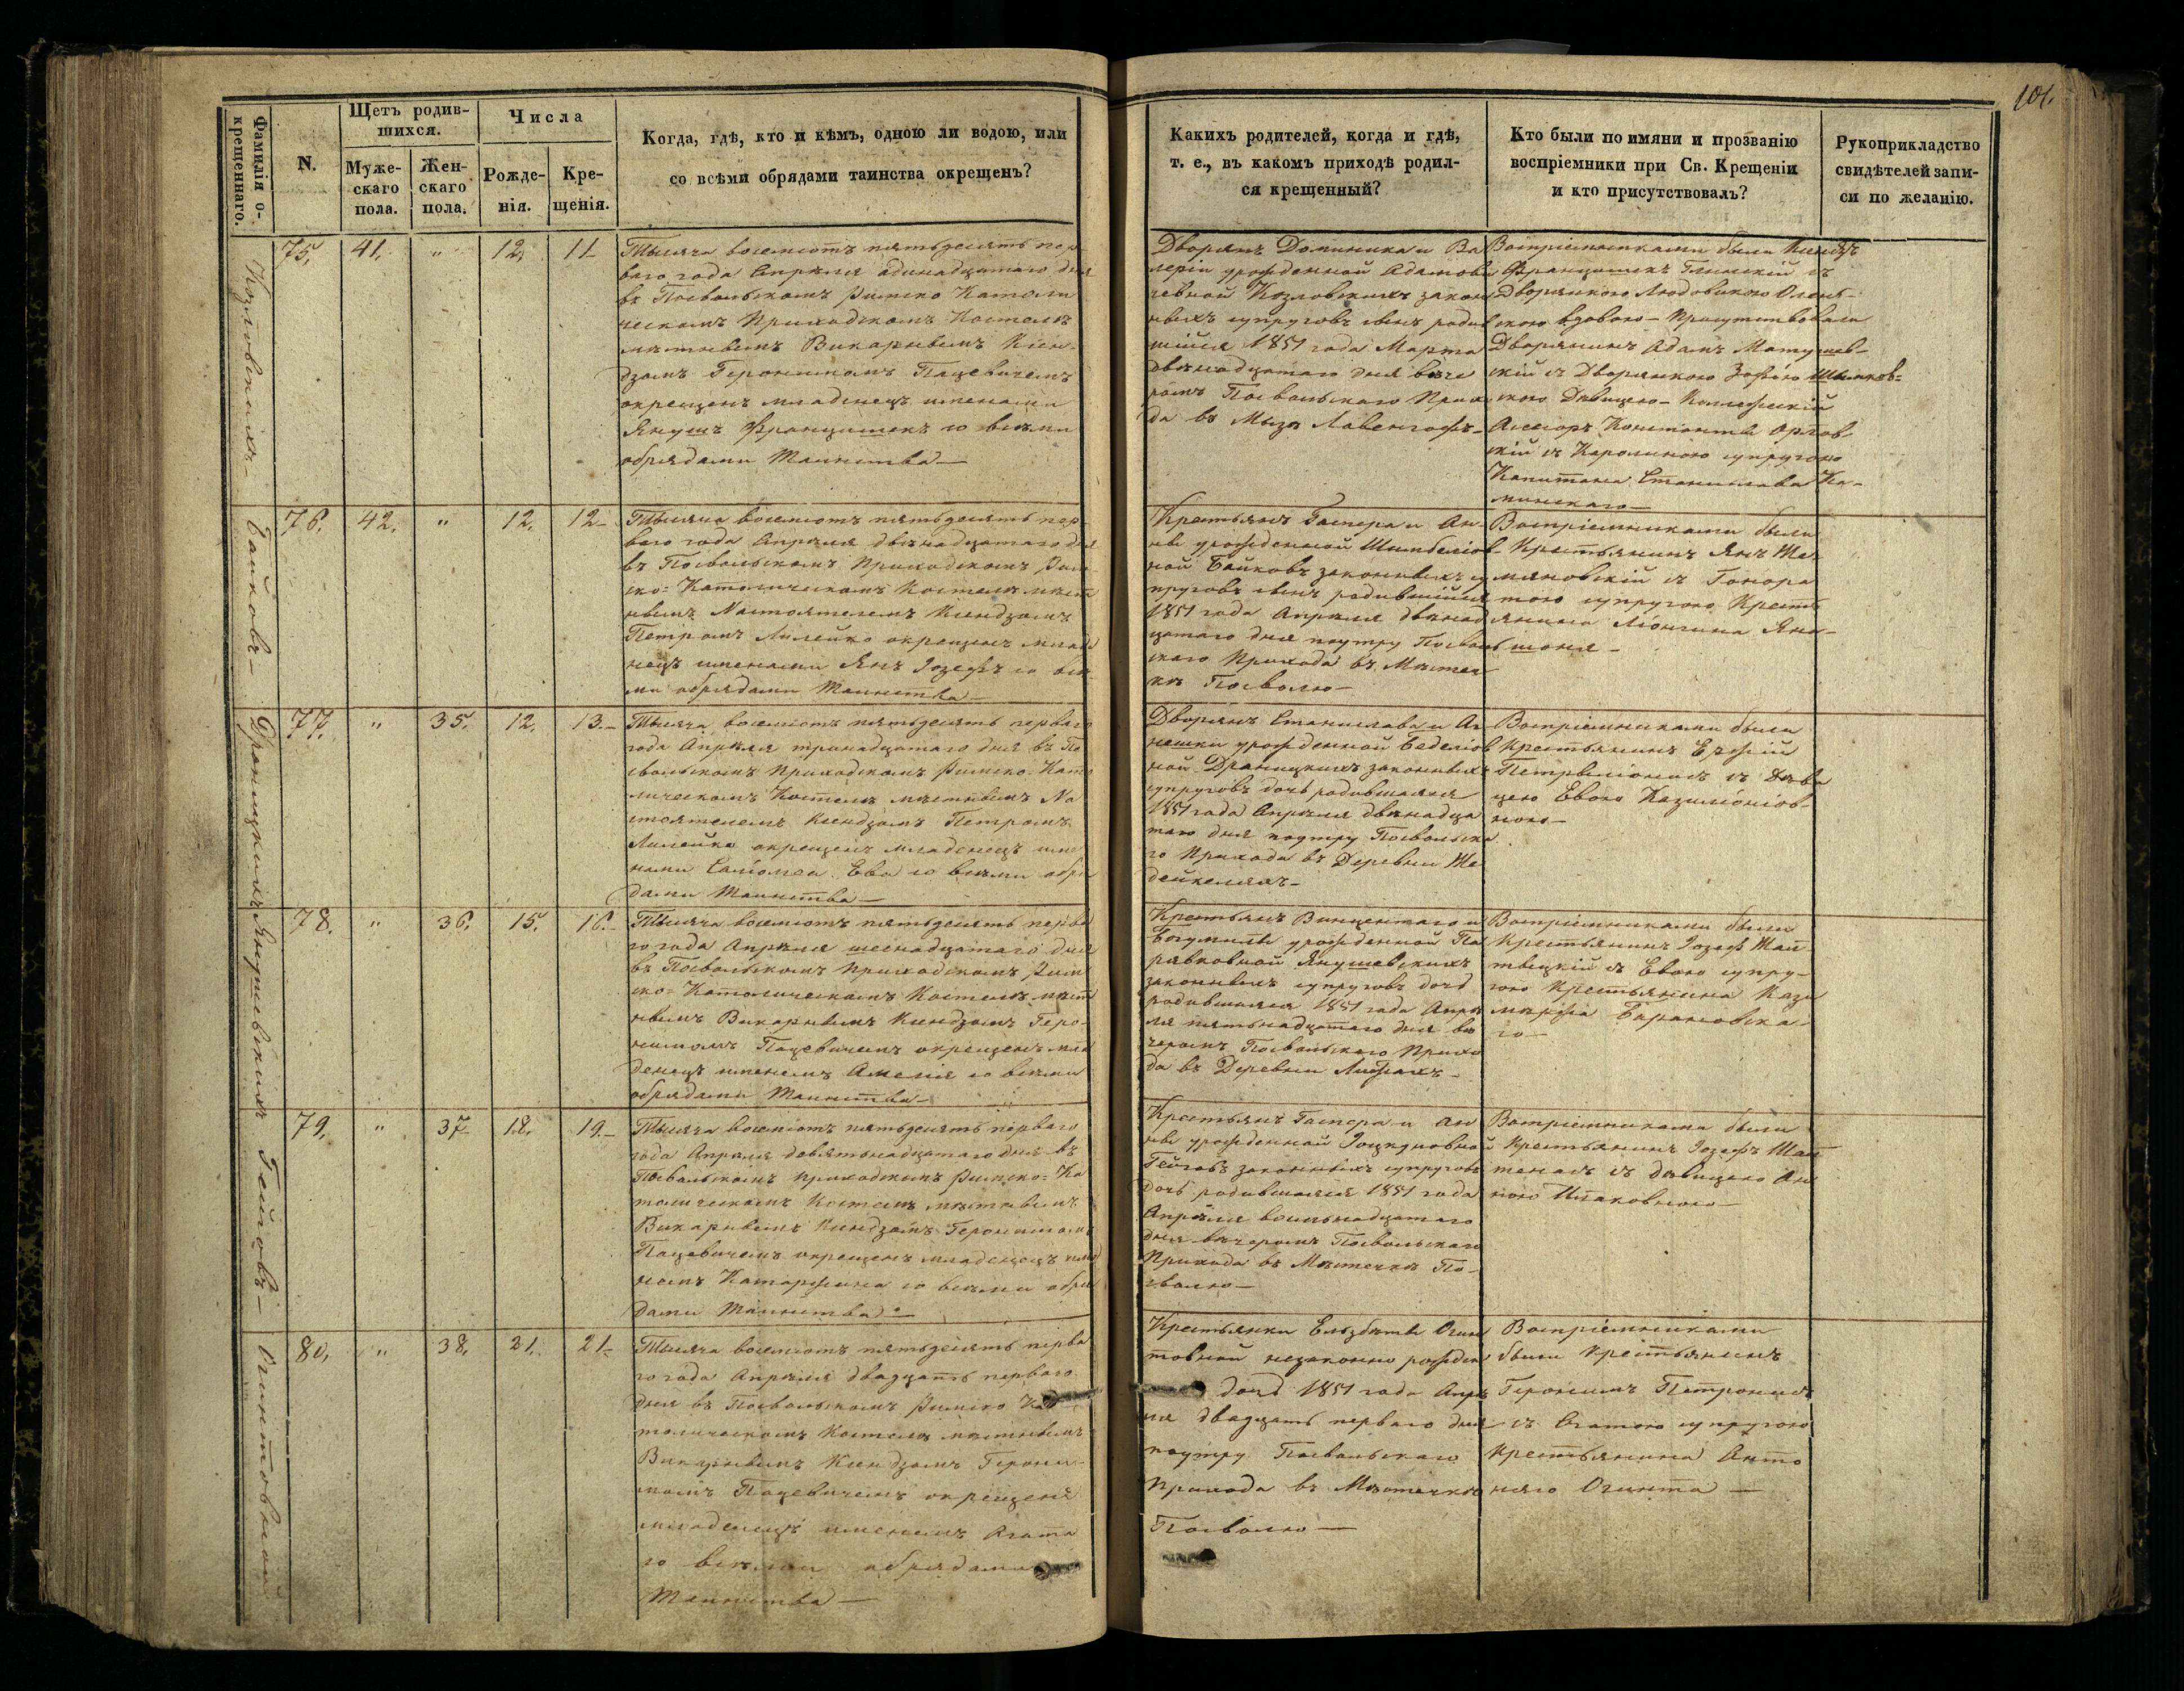 101.
Фамилія о-
крещеннаго.
N.
Щетъ родив-
шихся.
Муже-
скаго
пола.
Жен-
скаго
пола.
Числа
Рожде-
нія.
Кре-
щенія.
Когда, гдѣ, кто и кѣмъ, одною ли водою, или
со всѣми обрядами таинства окрещенъ?
Какихъ родителей, когда и гдѣ,
т. е., въ какомъ приходѣ родил-
ся крещенный?
Кто были по имяни и прозванію
воспріемники при Св. Крещеніи
и кто присутствовалъ?
Рукоприкладство
свидѣтелей запи-
си по желанію.
Козловскихъ—
75. 41. " 12. 11—
Тысяча восемсотъ пятьдесятъ пер-
ваго года Апрѣля одинадцатаго дня
въ Посвольскомъ Римско Католи
ческомъ Приходскомъ Костелѣ
мѣстнымъ Викарнымъ Ксен-
дзомъ Геронимомъ Пацевичемъ
окрещенъ младенецъ именами
Янушъ Францишекъ со всѣми
обрядами Таинства—
Дворянъ Доминика и Ва
леріи урожденной Адамови
чевной Козловскихъ закон
ныхъ супруговъ сынъ родив
шійся 1851 года Марта
двѣнадцатаго дня вѣче
ромъ Посвольскаго Прихо
да въ Мызѣ Лавенгофъ—
Воспріемниками были Князь
Францишекъ Глинскій съ
Дворянкою Людовикою
скою вдовою— Присутствовали
Дворянинъ Адамъ Матушев-
скій съ Дворянкою Зофіею
скою Дѣвицею— Коллежскій
Асесоръ Константы Орлов-
скій съ Каролиною супругою
Капитана Станислава Ка-
минскаго—
Байковъ—
76. 42. " 12. 12—
Тысяча восемсотъ пятьдесятъ пер-
ваго года Апрѣля двѣнадцатаго дня
въ Посвольскомъ Приходскомъ Рим-
ско=Католическомъ Костелѣ мѣст
нымъ Настоятелемъ Ксендзомъ
Петромъ Лилейко окрещенъ младе
нецъ именами Янъ Іозефъ со всѣ-
ми обрядами Таинства—
Крестьянъ Гаспера и Ан-
ны урожденной Шимбеліов-
ной Байковъ законныхъ су
пруговъ сынъ родившійся
1851 года Апрѣля двѣнад
цатаго дня поутру Посволь
скаго Прихода въ Мѣстеч
кѣ Посволю—
Воспріемниками были
Крестьянинъ Янъ Же
мяновскій съ Гонора
тою супругою Кресть
янина Ліонгина Яна-
шоня—
Драницкихъ
77. " 35. 12. 13.—
Тысяча восемсотъ пятьдесятъ перваго
года Апрѣля тринадцатаго дня въ По
свольскомъ Приходскомъ Римско-Като
лическомъ Костелѣ мѣстнымъ На
стоятелемъ Ксендзомъ Петромъ
Лилейко окрещенъ младенецъ име
нами Саломеа Ева со всѣми обря
дами Таинства—
Дворянъ Станислава и Аг
нешки урожденной Беделіов
ной Драницкихъ законныхъ
супруговъ дочь родившаяся
1851 года Апрѣля двѣнадца
таго дня поутру Посвольска
го Прихода въ Деревни Же
дейкеляхъ—
Воспріемниками были
Крестьянинъ Ержій
Петрыліонисъ съ Дѣви
цею Евою Казиліоніов-
ною—
Янушевскихъ
78. " 36. 15. 16.—
Тысяча восемсотъ пятьдесятъ перва
го года Апрѣля шеснадцатаго дня
въ Посвольскомъ Приходскомъ Рим
ско=Католическомъ Костелѣ мѣст
нымъ Викарнымъ Ксендзомъ Геро-
нимомъ Пацевичемъ окрещенъ мла
денецъ именемъ Амелія со всѣми
обрядами Таинства—
Крестьянъ Винцентаго и
Богумилы урожденной Па
рявковной Янушевскихъ
законныхъ супруговъ дочь
родившаяся 1851 года Апрѣ
ля пятьнадцатаго дня ве
черомъ Посвольскаго Прихо
да въ Деревни
Воспріемниками были
Крестьянинъ Іозефъ
съ Евою супру-
гою Крестьянина Кази
мержа Барановска-
го—
Гейговъ—
79. " 37 18. 19.—
Тысяча восемсотъ пятьдесятъ перваго
года Апрѣля девятьнадцатаго дня въ
Посвольскомъ приходскомъ Римско=Ка
толическомъ Костелѣ мѣстнымъ
Викарнымъ Ксендзомъ Геронимомъ
Пацевичемъ окрещенъ младенецъ име
немъ Катаржина со всѣми обря
дами Таинства—
Крестьянъ Гаспера и Ан
ны урожденной
Гейговъ законныхъ супруговъ
дочь родившаяся 1851 года
Апрѣля восьмьнадцатаго
дня вѣчеромъ Посвольскаго
Прихода въ Мѣстечкѣ По-
сволю—
Воспріемниками были
Крестьянинъ Іозефъ
съ дѣвицею Ан
ною
Огинтовной
80. " 38. 21. 21—
Тысяча восемсотъ пятьдесятъ перва
го года Апрѣля двадцать перваго
дня въ Посвольскомъ Римско Ка
толическомъ Костелѣ мѣстнымъ
Викарнымъ Ксендзомъ Герони-
момъ Пацевичемъ окрещенъ
младенецъ именемъ Агата
со всѣми обрядами
Таинства—
Крестьянки Ельзбеты Огин
товной незаконно рожден
дочь 1851 года Апрѣ
ля двадцать перваго дня
поутру Посвольскаго
Прихода въ Мѣстечкѣ
Посволю—
Воспріемниками
были Крестьянинъ
Геронимъ Петронисъ
съ Агатою супругою
крестьянина Анто
няго Огинта—